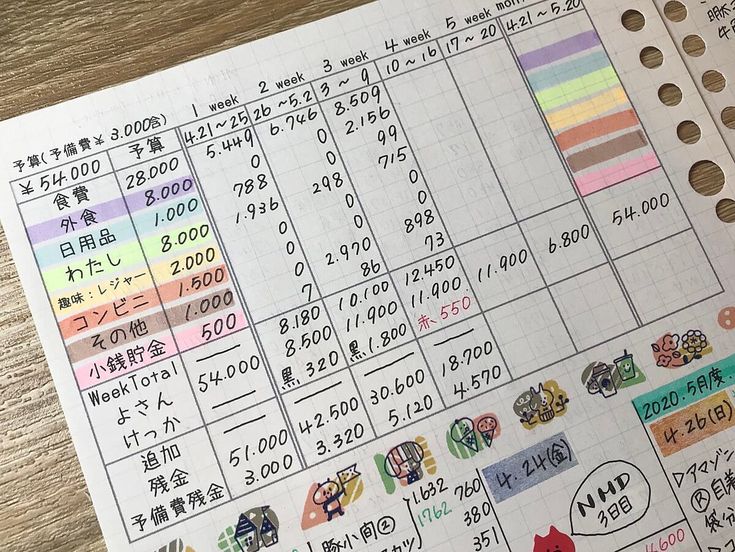 1 week 2 week 3 week 4 week 5 week
予算(予備費¥3.000含) 4.21~25 26~5.2 3~9 10~16 17~20 4.21~5.20
¥54.000 予算
食費 28.000 5.449 6.746 8.509
外食 8.000 0 0 2.156
日用品 1.000 788 0 99
わたし 8.000 1.936 298 715
趣味:レジャー 2.000 0 0
コンビニ 1.500 0 0
その他 1.000 0 2.970 898
小銭貯金 500 7 86 73
WeekTotal — 8.180 10.100 12.450
よさん 54.000 8.500 11.900 11.900 11.900 6.800 54.000
けっか — 黒320 黒1.800 赤550
追加 — — — —
残金 51.000 42.500 30.600 18.700
予備費残金 3.000 3.320 5.120 4.570
2020.5月度
4.24(金)
4.26(日)
NHD
3日目
▷アマゾン
豚小間②
1.632
1762
760
380
351
4.600